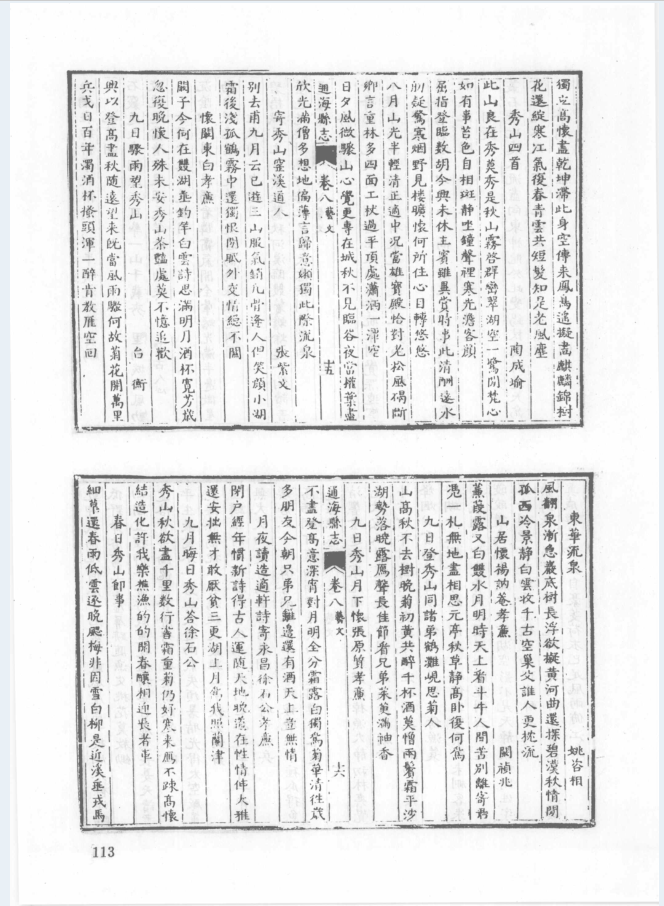 獨立高懷盡乾坤滯此身空傳來鳳馬遮擬畫麒麟錦樹
花還綻寒江氣復春青雲共短髮知是老風塵
秀山四首
闞成瑜
此山良在秀莫秀是秋山霧啓群巒翠湖空一鷺閒梵心
如有事苔色自相斑靜坐鐘聲裡寒光澹客顏
屈指登臨數胡今興未休主賓雖異賞時事此清酬遠水
初疑鷺寒烟野見樓曠懷何所住心目轉悠悠
八月山光半輕清正適中況當雄寶殿恰對老松風碣斷
卿言重林多四面工杖過平頂處瀟洒一澤空
日夕風微驟山心覺更專在城秋不見臨谷夜當擁葉盡
通海縣志
卷八藝文
十五
欣光滿僧多想地偏薄言歸意嬾獨此際流泉
寄秀山窐溪道人
張紫文
別去甫九月云已遊三山服氣頻凡骨邊人但笑顏小湖
霜後淺孤鶴霧中還獨恨閉戶外交情總不關
懷闞東白孝廉
闞子今何在雙湖垂釣竿白雲詩思滿明月酒杯寬芳歲
忽復晚懷人殊未安秀山茶豔處莫不憶追歡
九日驟雨望秀山
台衡
興以登高盡秋隨遠望來既當風雨驟何故菊花開萬里
兵戈日百年濁酒杯撩頭渾一醉肯教雁空回
東華流泉
姚咨相
風翻泉漸急巖底樹長浮欲擬黃河曲還探碧漢秋情閒
孤西冷景靜白雲收千古空巢父誰人更枕流
山居懷楊訥菴孝廉
闞禎兆
蒹葭露又白雙水月明時天上看斗牛人間苦別離寄君
憑一札無地盡相思元亭秋草靜高卧復何為
九日登秀山同諸弟鶴灘峴思菊人
山高秋不去樹晚菊初黃共醉千杯酒莫憎兩鬢霜平沙
湖勢落晚露雁聲長佳節看兄弟茱萸滿袖香
九日秀山月下懷張原質孝廉
通海縣志
卷八藝文
十六
不盡登高意深宵對月明全分霜露白獨駕菊華清往歲
多朋友今朝只弟兄難邊還有酒天上豈無情
月夜讀造適軒詩寄永昌徐石公孝廉
閉戶經年慣新詩得古人運隨天地晚道在性情伸大雅
還安拙無才敢厭貧三更湖上月為我照蘭津
九月晦日秀山荅徐石公
秀山秋欲盡千里數行書霜重菊仍好寒來雁不疎高懷
結造化許我樂樵漁的的開春釀相迎長者車
春日秀山即事
細草還春雨低雲逐晚颸梅非因雪白柳是近溪垂戎馬
113